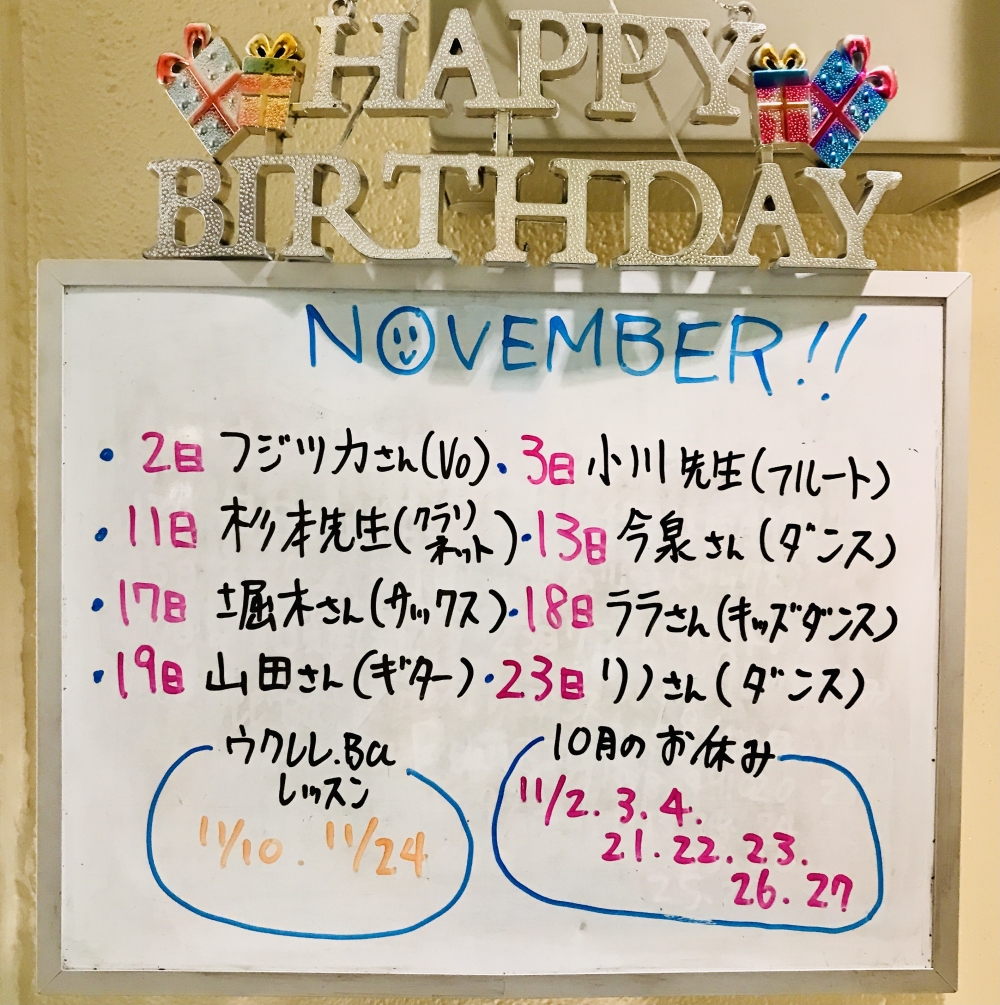 HAPPY
BIRTHDAY
NOVEMBER!!
・2日 フジツカさん(Vo)・3日 小川先生(フルート)
・11日 杉本先生(クラリネット)・13日 今泉さん(ダンス)
・17日 堀木さん(サックス)・18日 ララさん(キッズダンス)
・19日 山田さん(ギター)・23日 リノさん(ダンス)
ウクレレ.Ba
レッスン
11/10. 11/24
10月のお休み
11/2. 3. 4.
21. 22. 23.
26. 27